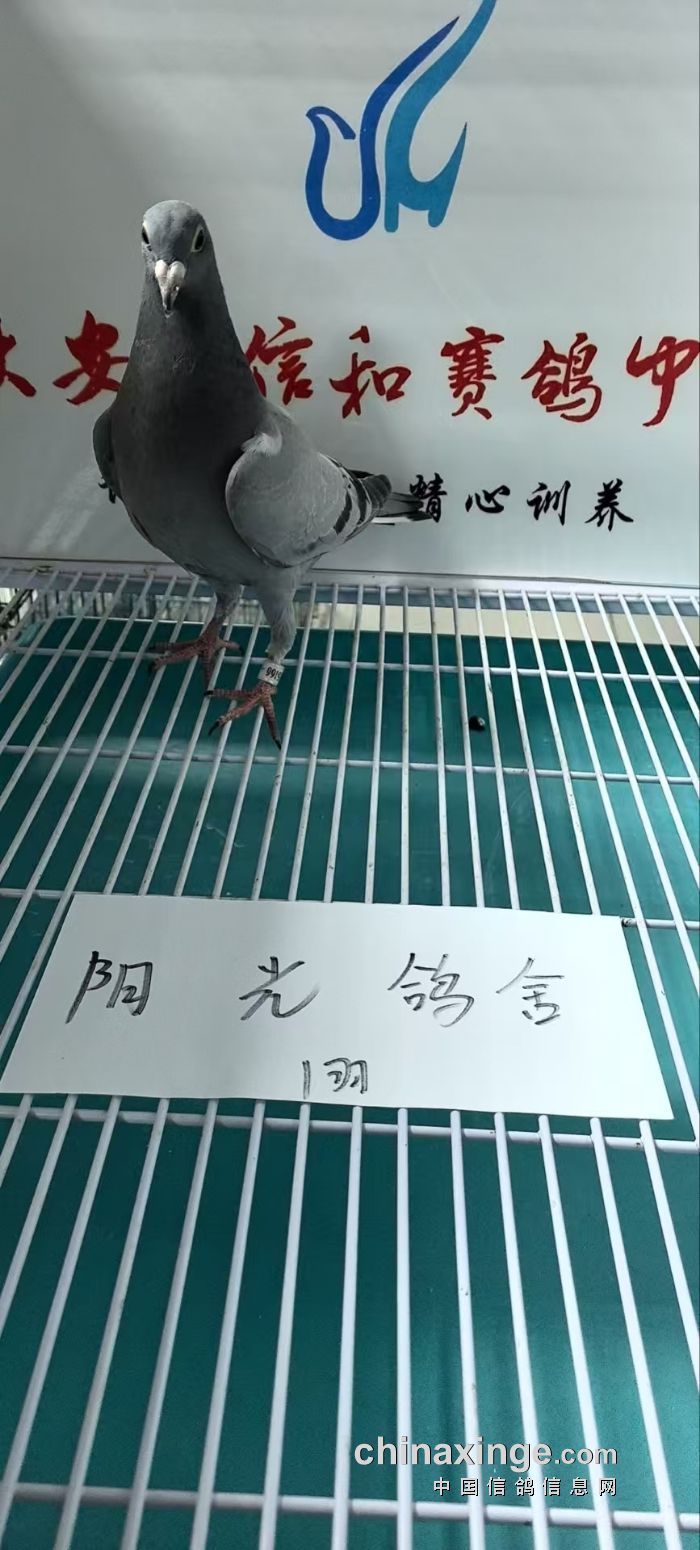 安 信和赛鸽中
精心训养
阳光鸽舍
1羽
chinaxinge.com
中国信鸽信息网